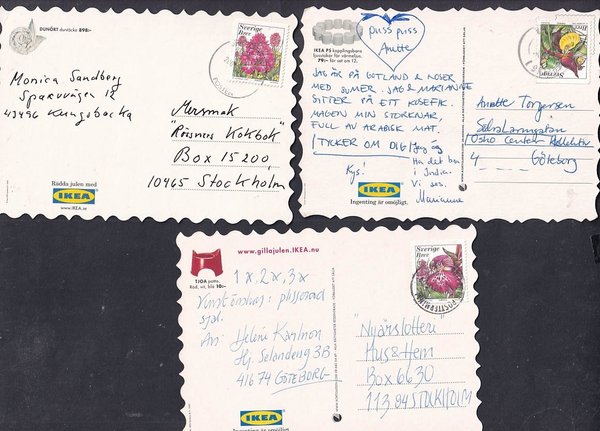 DUNÖRT duntäcke 898:-
Sverige
Brev
Monica Sandberg
Sparvvägen 12
43496 Kungsbacka
Mersmak
"Rosiners Kokbok"
Box 15200
10465 Stockholm
Rädda julen med
IKEA
www.IKEA.se
IKEA PS kopplingsbara
ljusstakar för värmeljus.
79:- för set om 12.
puss puss
Anette
Sverige
Brev
JAG ÄR PÅ GOTLAND &
MED SUMER. JAG & MARIANNE
SITTER PÅ ETT KUSEFIK.
MAGEN MIN STORKNAR,
FULL AV ARABISK MAT.
TYCKER OM DIG!
Jag
Ha det bra
i Indien.
Vi ses.
Marianne
Kys!
IKEA
Ingenting är omöjligt.
Anette Torgersen
Osho Center
4
Göteborg
TJOA potta.
Röd, vit, blå 10:-
www.gillajulen.IKEA.nu
Sverige
Brev
1x, 2x, 3x
plisserad
sjal.
Av: Heléne Karlsson
Hj. Selanderg 3B
41674 GÖTEBORG
IKEA
Ingenting är omöjligt.
"Nyårslotteri
Hus & Hem
Box 6630
11384 STOCKHOLM